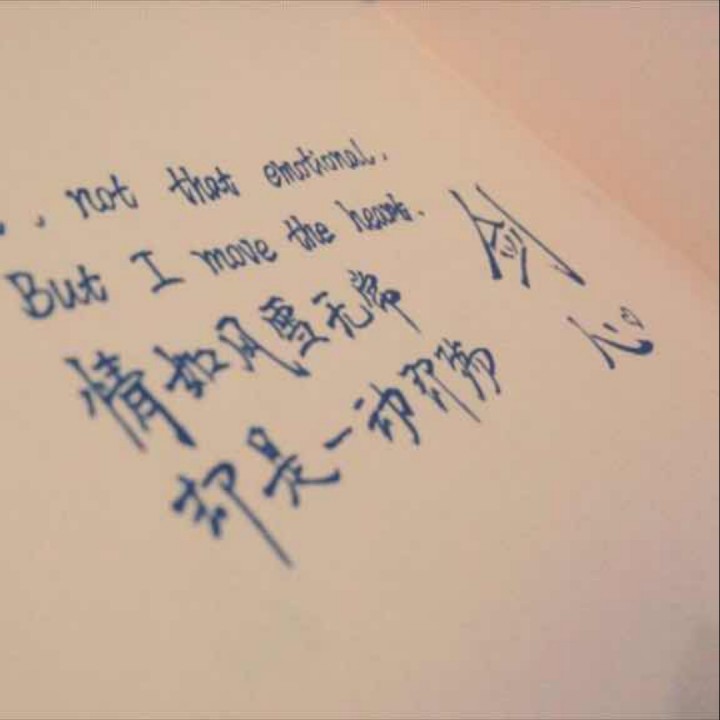 not that emotional.
But I move the heart.
情如风雪无常
却是一动即伤
剑心